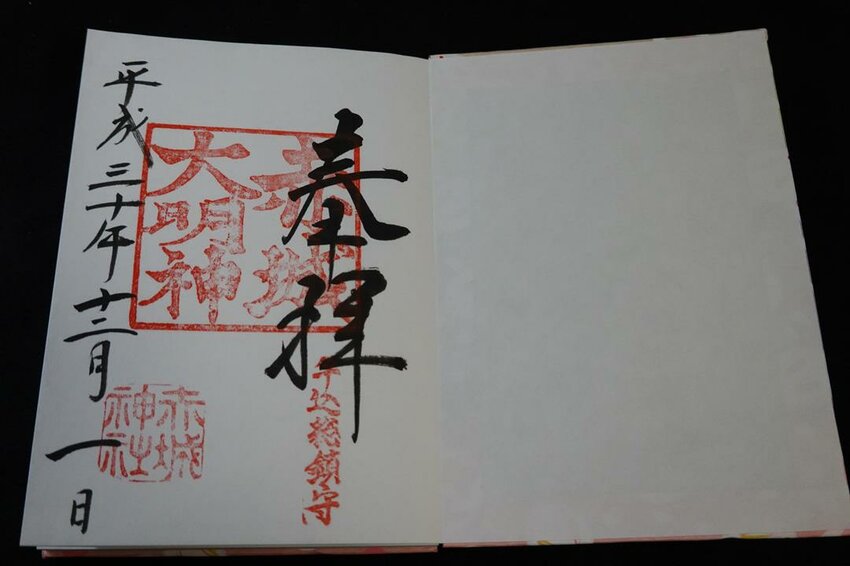 奉拝
赤城
大明神
牛込総鎮守
平成三十年十二月一日
赤城
神社